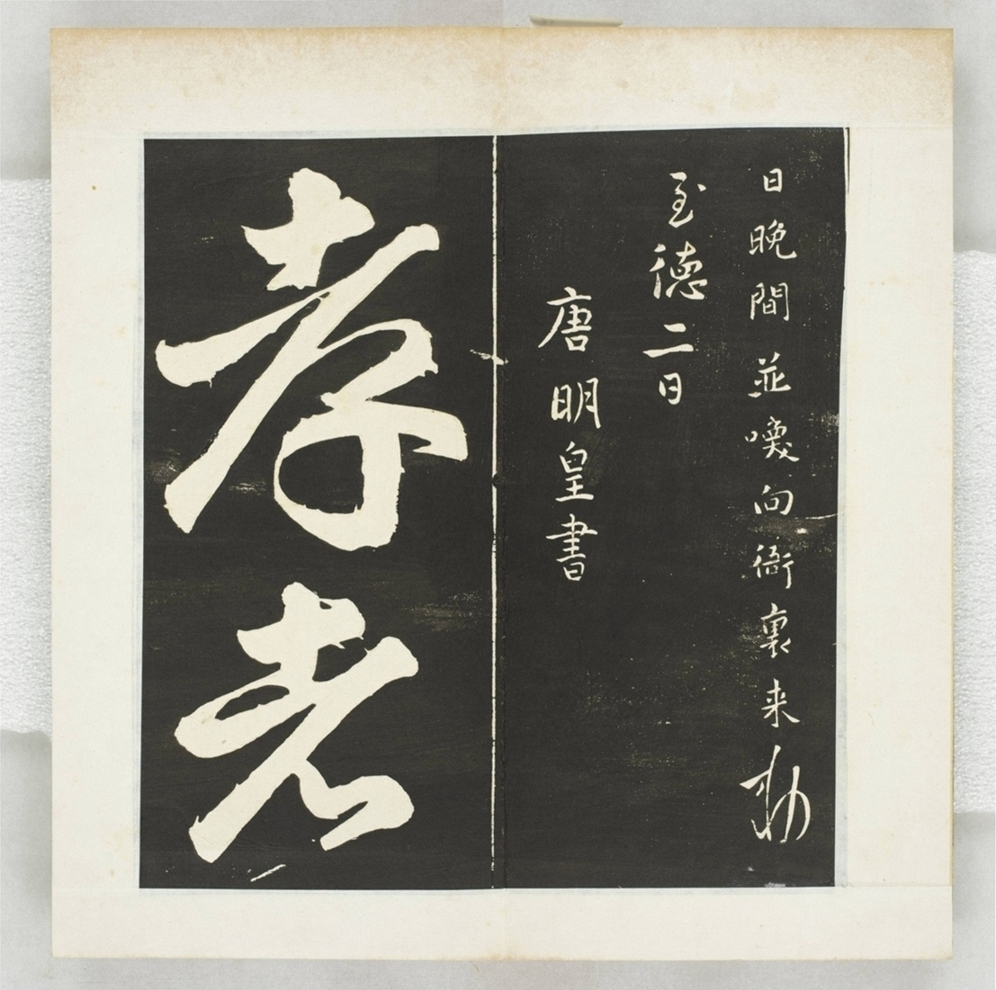 日晩間並喚向衙裏来勅
至德二日
唐明皇書
孝者